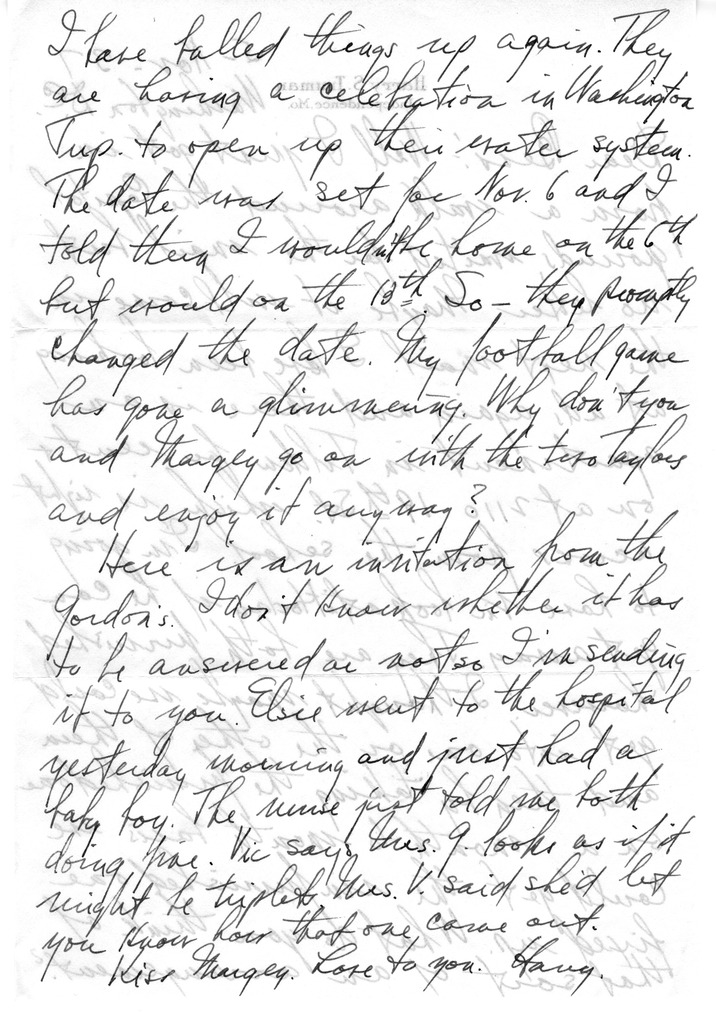 I have balled things up again. They
are having a celebration in Washington
Twp. to open up their water system.
The date was set for Nov. 6 and I
told them I wouldn't be home on the 6th
but would on the 13th. So - they promptly
changed the date. My football game
has gone a glimmering. Why don't you
and Margey go on with the two Taylors
and enjoy it anyway?
Here is an invitation from the
Gordon's. I don't know whether it has
to be answered or not so I'm sending
it to you. Elsie went to the hospital
yesterday morning and just had a
baby boy. The nurse just told me both
doing fine. Vic says Mrs. G. looks as if it
might be triplets. Mrs. V. said she'd let
you know how that one came out.
Kiss Margey. Love to you. Harry.